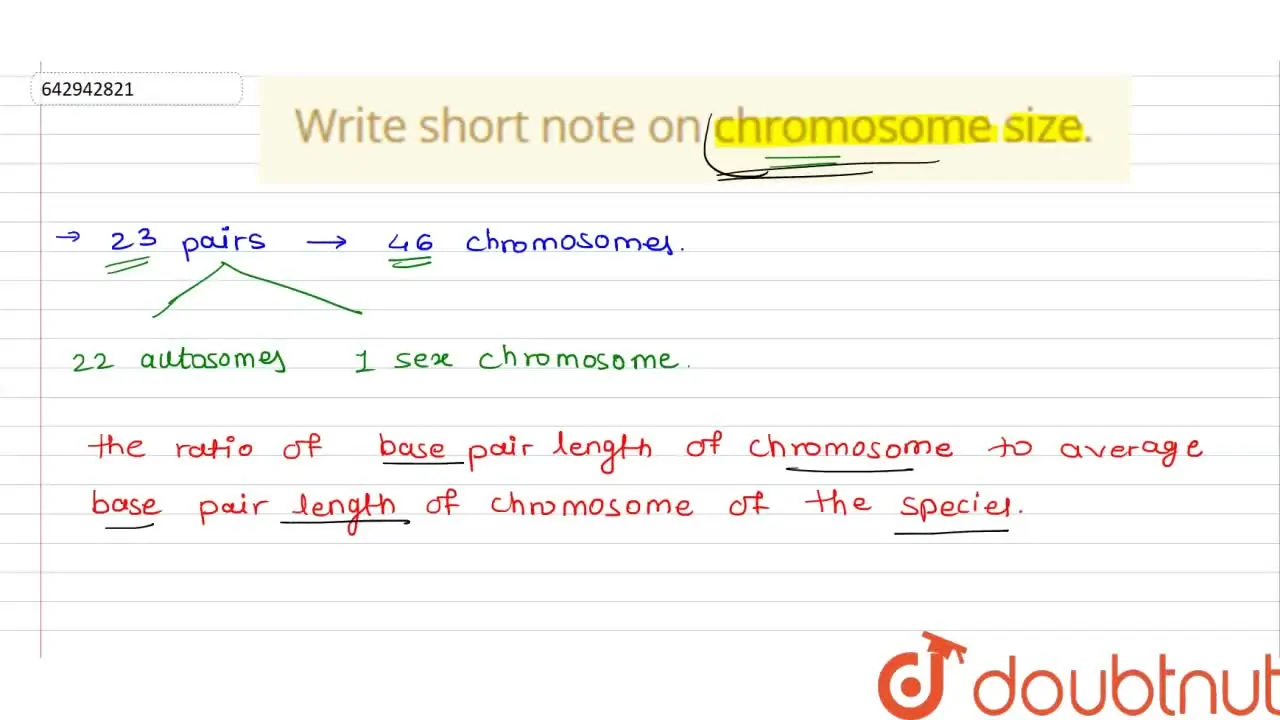 642942821
Write short note on chromosome size.
→ 23 pairs → 46 chromosomes.
22 autosomes 1 sex chromosome.
the ratio of base pair length of chromosome to average
base pair length of chromosome of the species.
doubtnut